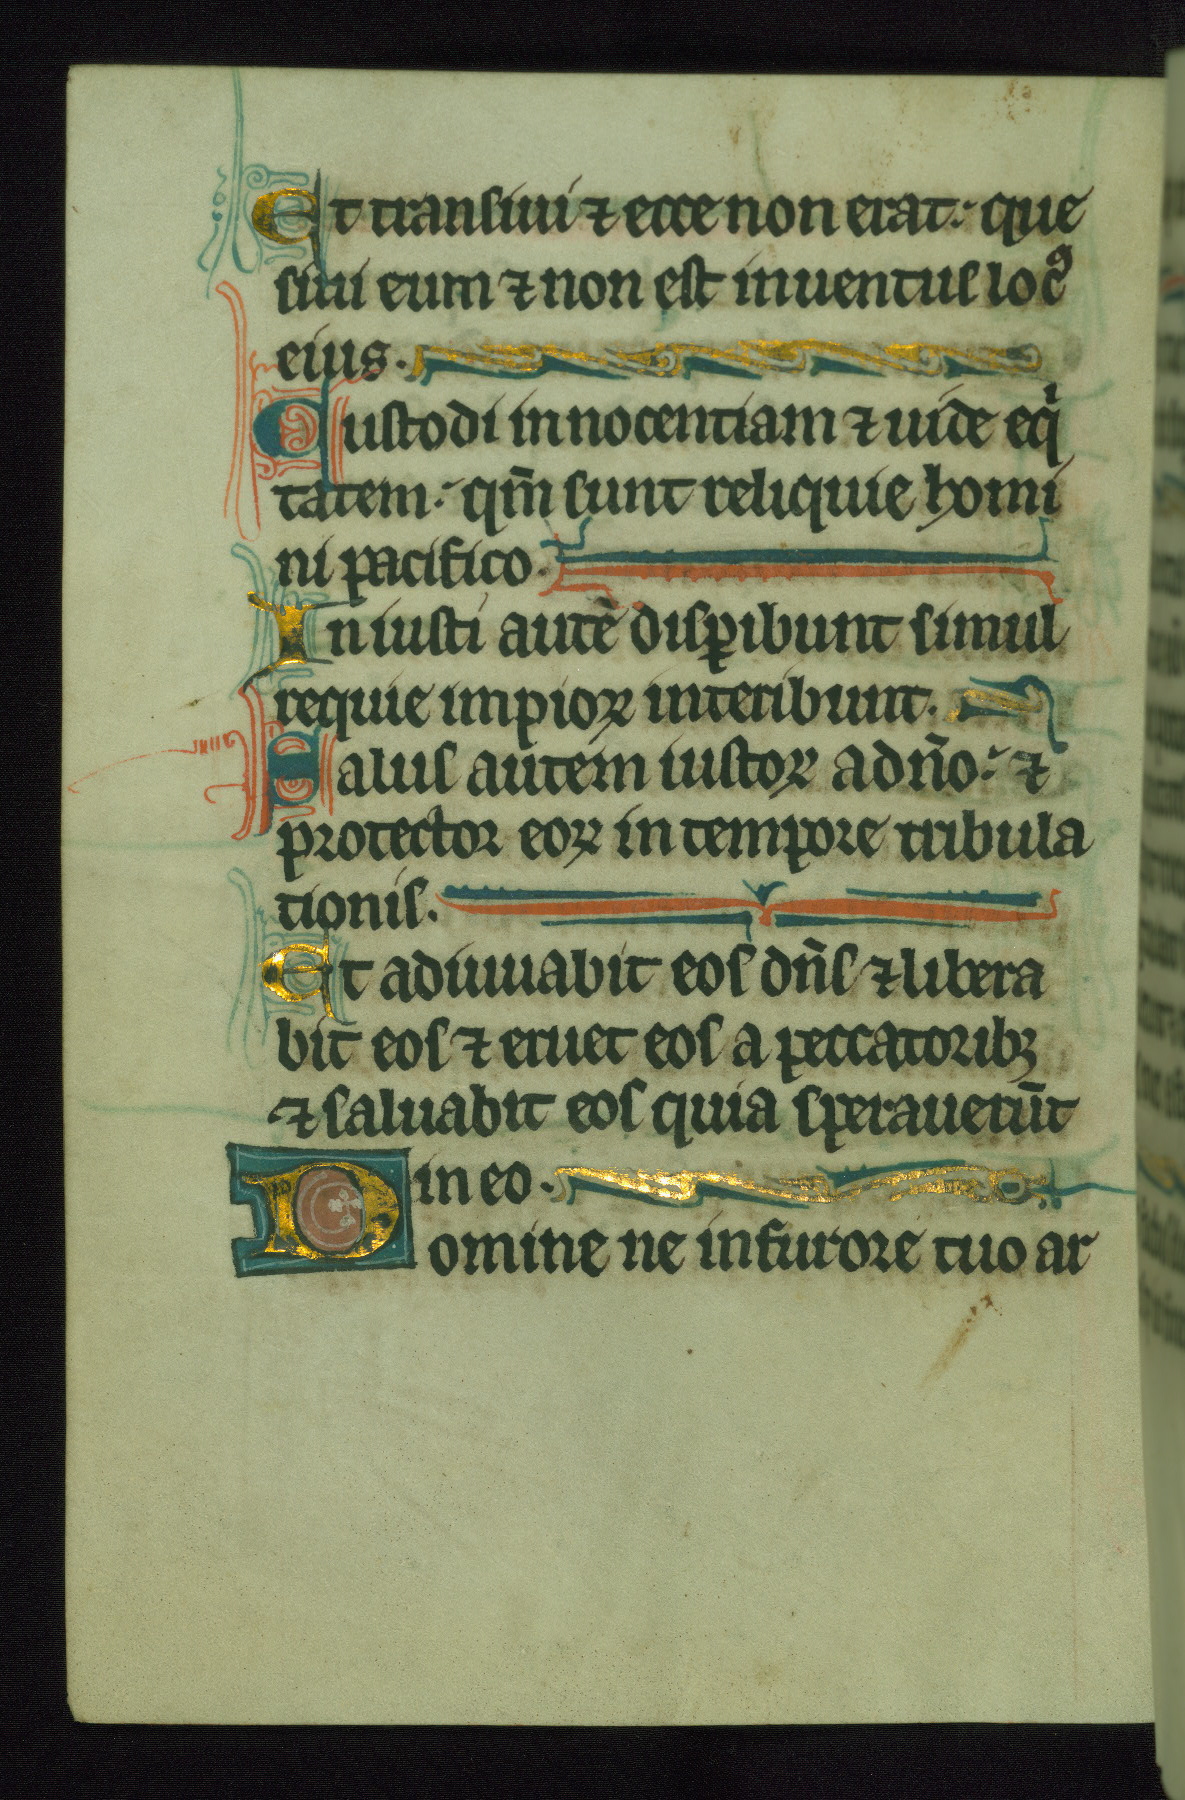 Et transiui ⁊ ecce non erat: que
siui eum ⁊ non est inuentus locꝰ
eius.
Custodi innocentiam ⁊ uide eqⁱ
tatem: qm̄ sunt reliquie homi
ni pacifico.
Iniusti autē disꝑibunt simul
requie impioꝝ interibunt.
Salus autem iustoꝝ a dn̄o: ⁊
protector eoꝝ in tempore tribula
tionis.
Et adiuuabit eos dn̄s ⁊ libera
bit eos ⁊ eruet eos a peccatoribꝫ
⁊ saluabit eos quia sperauerūt
in eo.
Domine ne in furore tuo ar